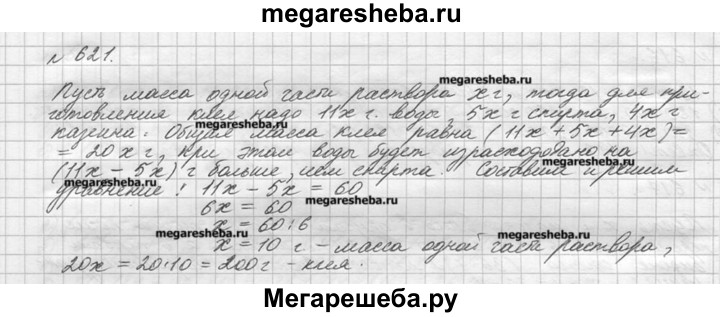 megaresheba.ru
N 621.
megaresheba.ru
Пусть масса одной части раствора x г, тогда для при-
готовления клея надо 11x г воды, 5x г спирта, 4x г
megaresheba.ru
казеина. Общая масса клея равна (11x + 5x + 4x) =
= 20x г, при этом воды будет израсходовано на
megaresheba.ru
(11x - 5x) г больше, чем спирта. Составим и решим
megaresheba.ru
уравнение: 11x - 5x = 60
megaresheba.ru
6x = 60
x = 60:6
megaresheba.ru
x = 10 г - масса одной части раствора,
megaresheba.ru
20x = 20·10 = 200 г - клея.
Мегарешеба.ру